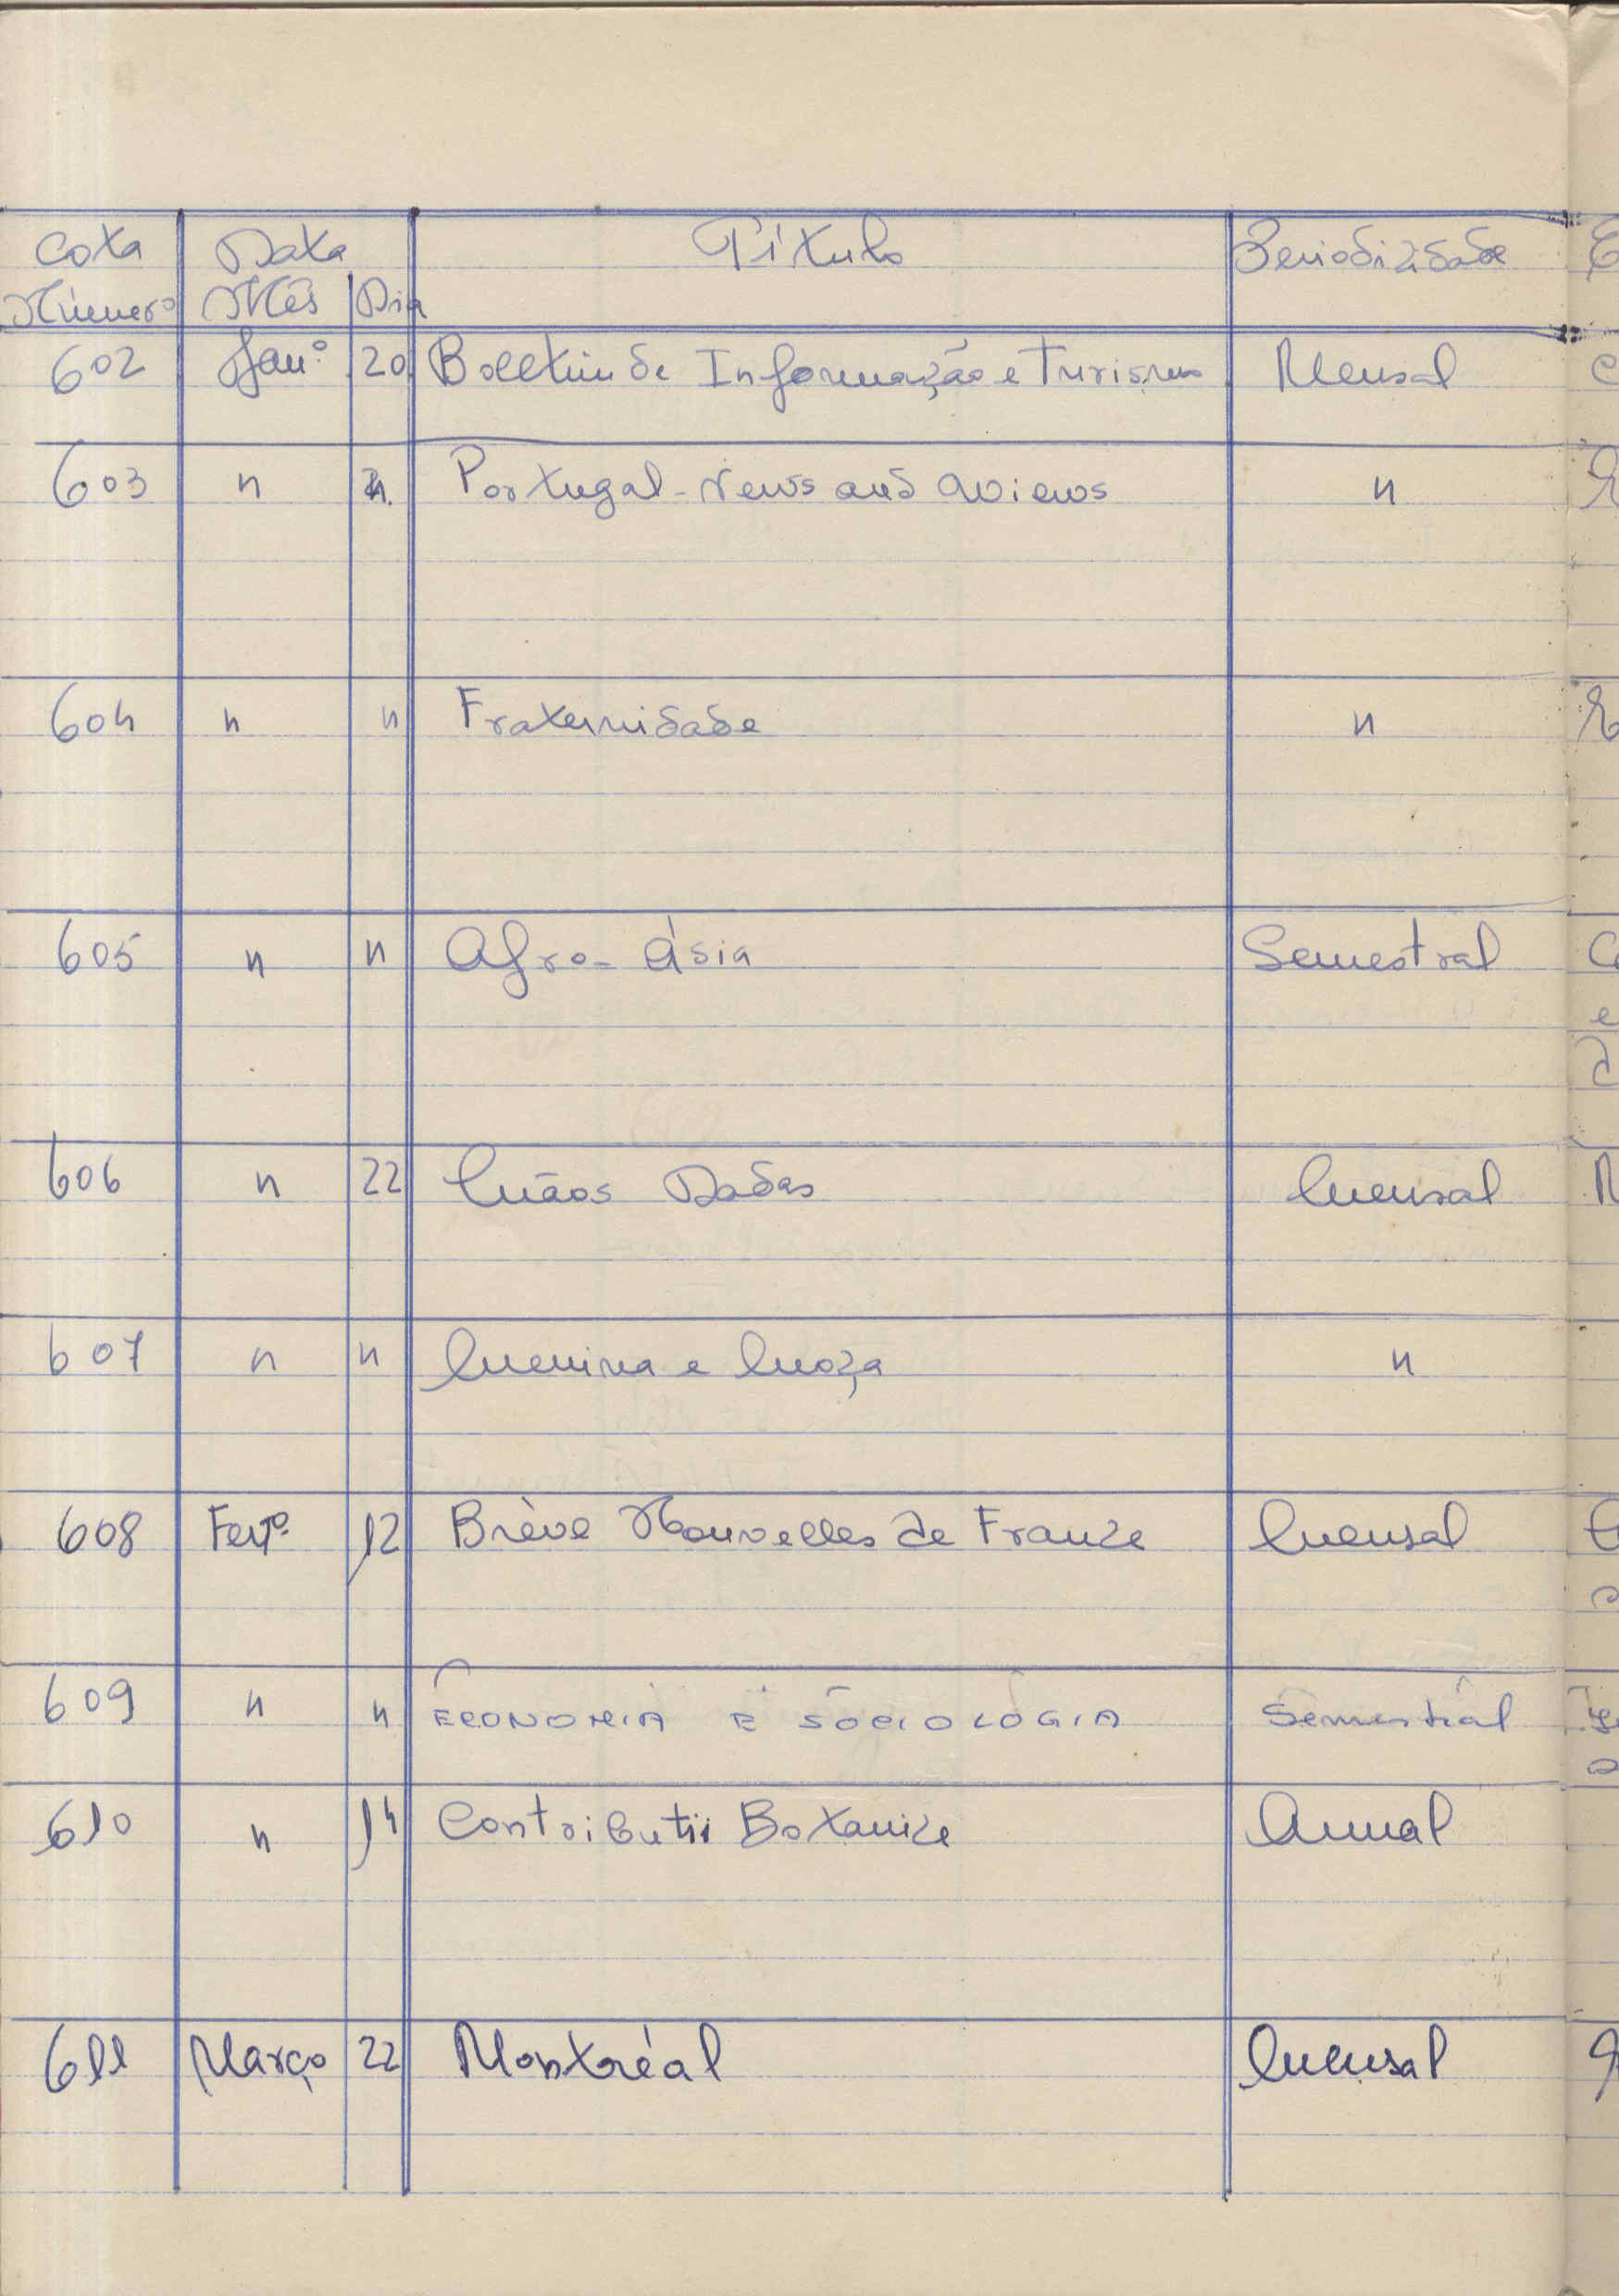 Cota Data Título Periodicidade
Número Mês Dia
602 Janº 20 Boletim de Informação e Turismo Mensal
603 " ". Portugal - News and Views "
604 " " Fraternidade "
605 " " Afro-Ásia Semestral
606 " 22 Mãos Dadas Mensal
607 " " Menina e Moça "
608 Fevº 12 Brève Nouvelles de France Mensal
609 " " ECONOMIA E SOCIOLOGIA Semestral
610 " 14 Contributii Botanice Anual
611 Março 22 Montréal Mensal